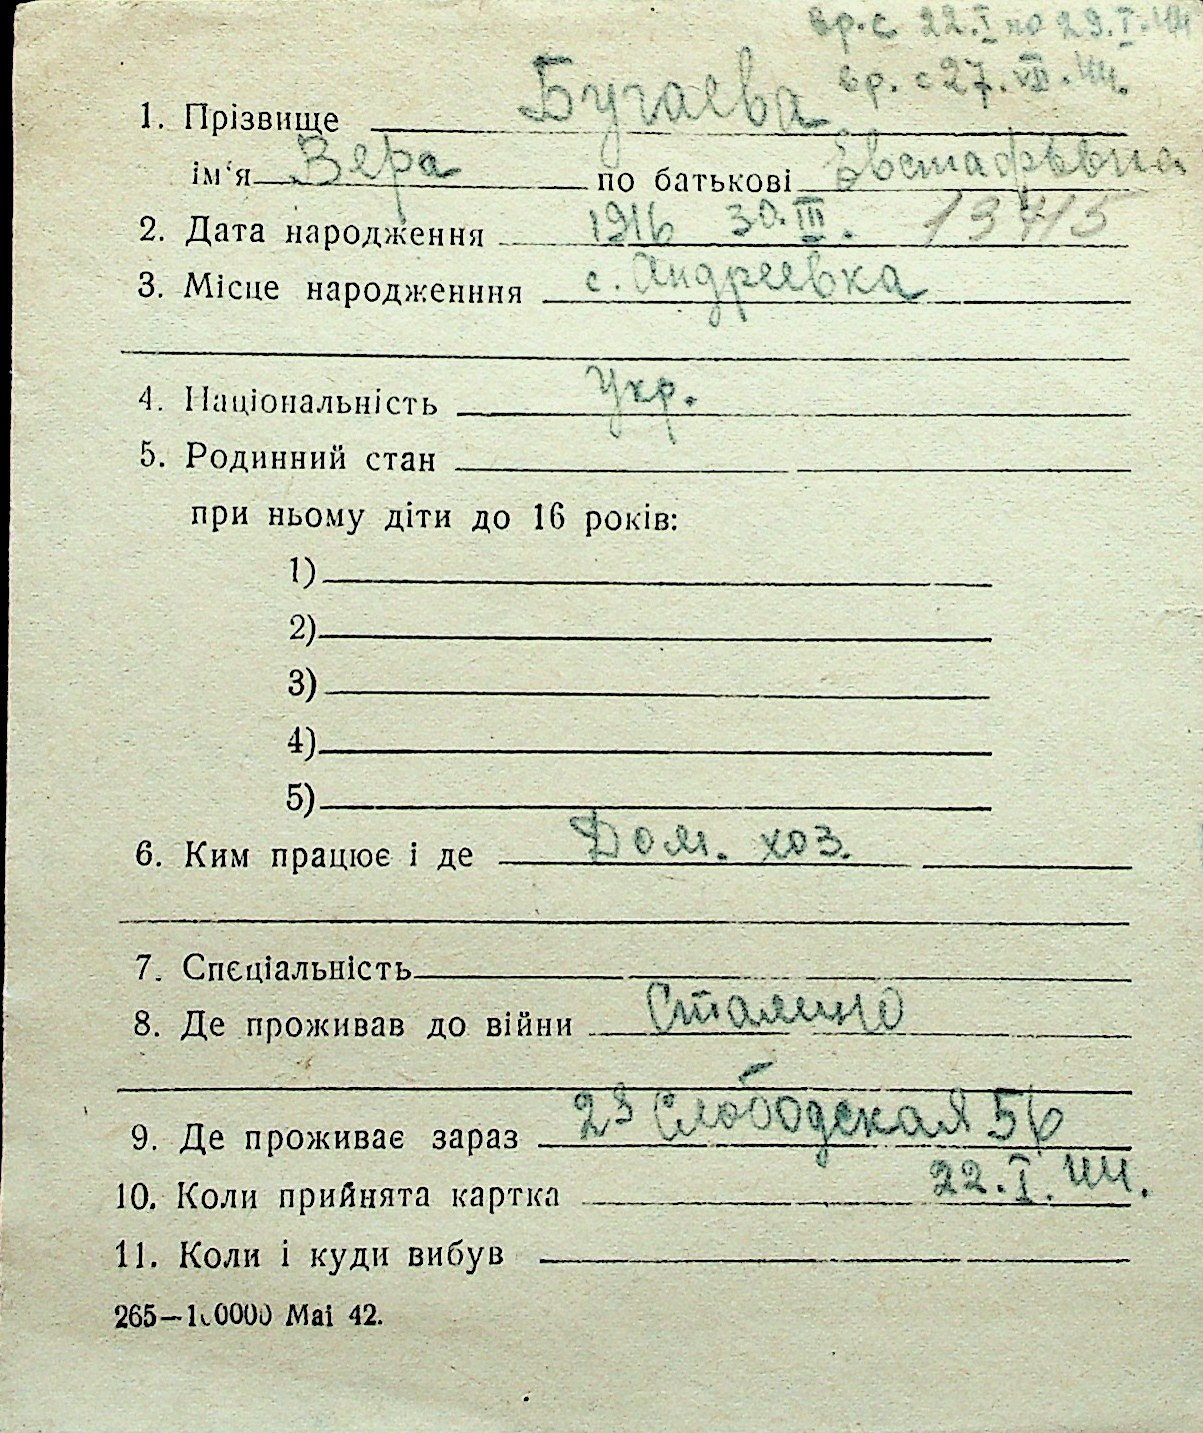 вр. с 22.I по 29.I.44
вр. с 27.VII.44.
1. Прізвище Бугаева
ім'я Вера по батькові Евстафьвна
2. Дата народження 1916 30.III. 13415
3. Місце народженння с. Андреевка
4. Національність Укр.
5. Родинний стан
при ньому діти до 16 років:
1)
2)
3)
4)
5)
6. Ким працює і де Дом. хоз.
7. Спєціальність
8. Де проживав до війни Сталино
9. Де проживає зараз Слободская 56
10. Коли прийнята картка 22.I.44.
11. Коли і куди вибув
265—100000 Mai 42.